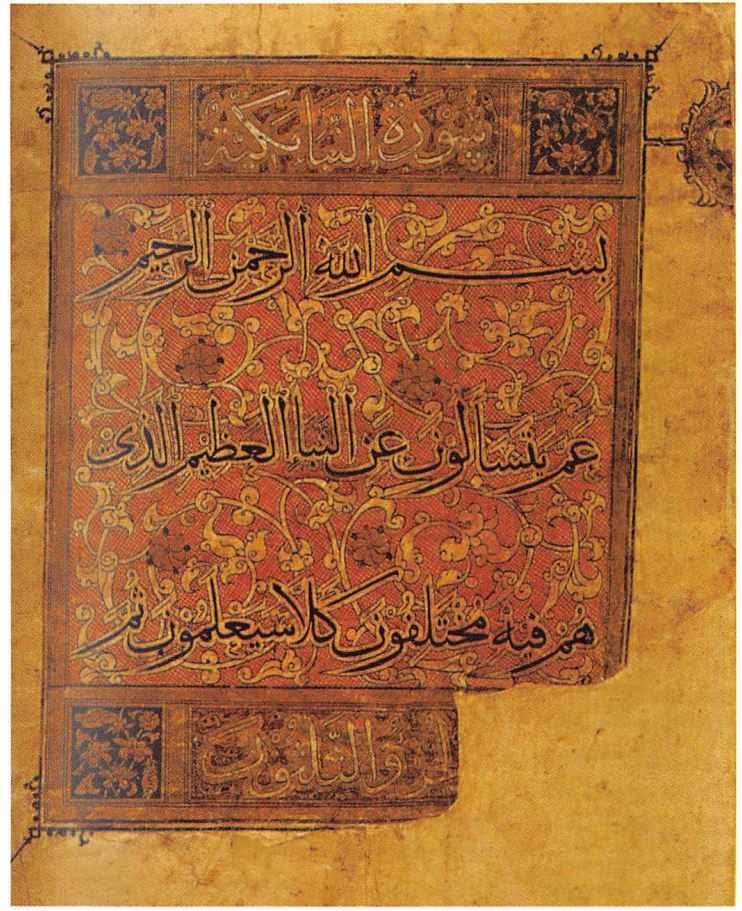 سُورَة النبا مكيّة
بِسْم اللَّه الرَّحمٰن الرَّحيم
عمَّ يتسَاَلونَ عَن النَّبَا العَظيم الذى
هُم فيهِ مُختَلفُونَ كلا سَيَعلَمُونَ ثُمَّ
الثلثون